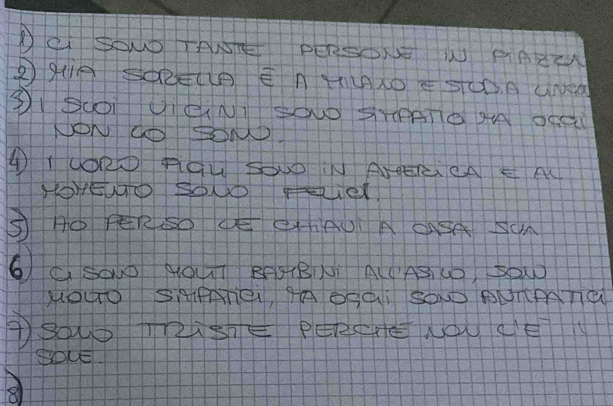 1) CI SONO TANTE PERSONE IN PIAZZA
2) MIA SORELLA È A MILANO E STUDIA LINGUA
3) I SUOI VICINI SONO SIMPATICI MA OGGI
NON LO SONO.
4) I LORO FIGLI SONO IN AMERICA E AL
MOMENTO SONO FELICI.
5) HO PERSO LE CHIAVI A CASA SUA
6) CI SONO MOLTI BAMBINI ALL'ASILO, SONO
MOLTO SIMPATICI, MA OGGI SONO ANTIPATICI
7) SONO TRISTE PERCHE NON C'È IL
SOLE.
8)